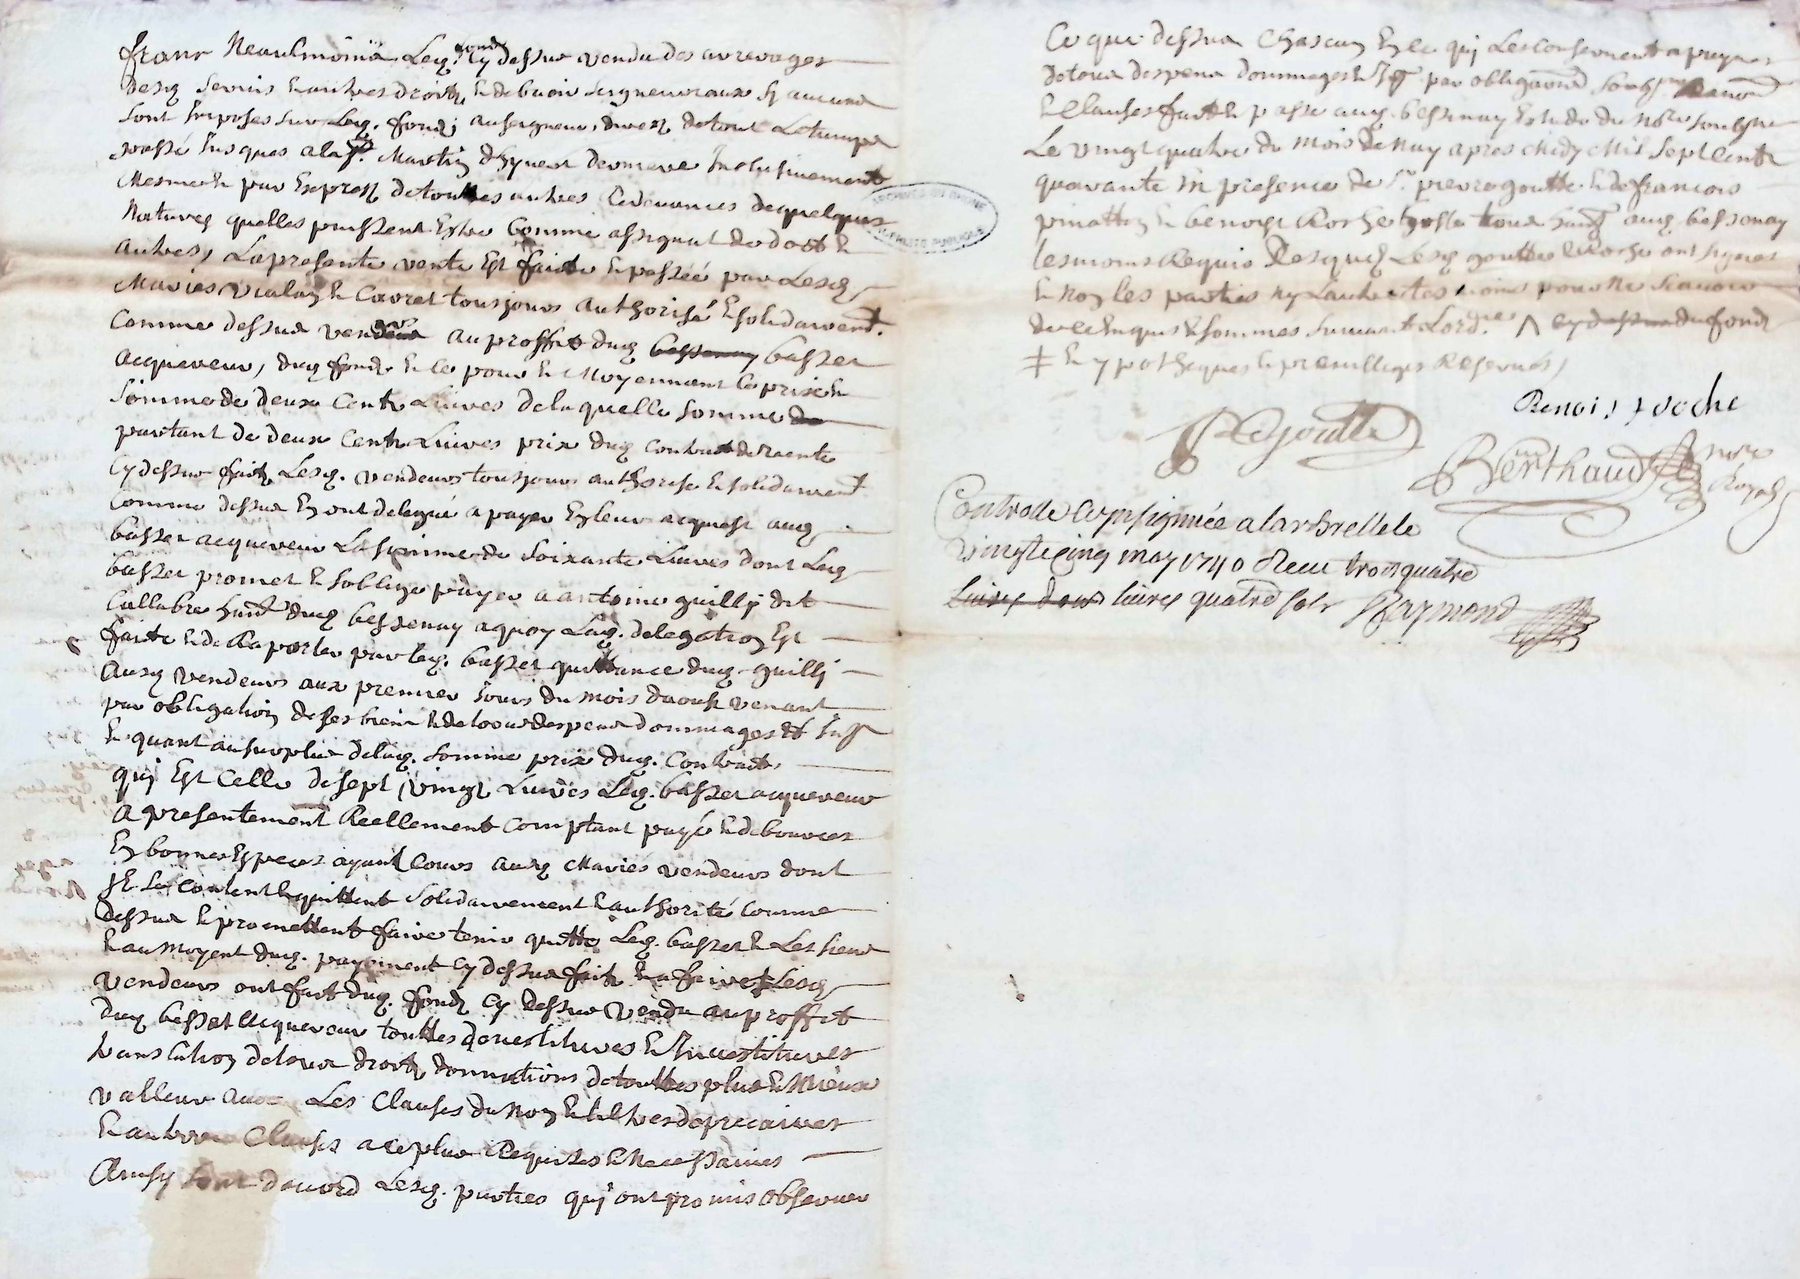 franc Neaulmoins Ledq. fondz cy dessus vendu des arrerages
desq servis & autres droits & debvoir seigneuriaux sy aucuns
sont imposes sur ledq. fondz au seigneur direq de tout le temps
passé jusques a la st. Martin d'hyvert derniere inclusivement
Mesme & par Exprez de touttes autres redevances de quelques
Natures quelles puissent Estre comme assignat de dost &
autres, La presente vente Est faitte & passéé par Lesq
Mariés vialay & Carret tousjours authorisé & solidairemt.
comme dessus vendeurs au proffit duq bessenay basset
acquereur, duq fondz & ce pour & Moyennant le prix &
somme de deux Cents Livres de laquelle somme de
partant de deux Cents Livres prix duq contrat de vente
cy dessus fait, Lesq. vendeurs tousjours authorisé & solidairemt
comme dessus En ont delegué a payer En leur acquest auq
basset acquereur La somme de soixante Livres dont Leq
basset promet & soblige payer a antoine guilly dit
Callabre hant duq bessenay a quoy Laq. delegation Est
faitte & de Raporter par leq. basset quittance duq guilly
ausq vendeurs aux premier jours du mois daoust venant
par obligation de ses biens & de tous despens dommages & int
& quant au surplus de laq. somme prix duq. Contrat,
quy Est Celle de sept vingt Livres Leq. basset acquereur
a presentement Reellement comptant payé & debourcés
En bonnes Especes ayant Cours ausq Mariés vendeurs dont
jl se contentt & quittent solidairement & authorité comme
dessus & promettent faire tenir quitte Leq. basset & Les siens
& au moyent duq. payement cy dessus fait & a faire Lesq
vendeurs ont fait duq. fondz cy dessus vendu au proffit
duq basset acquereur touttes devestitures & Investitures
translation de tous droits donnations de touttes plus & Mieux
valleur avec Les Clauses du Noy & tiltres de precaires
& autres Clauses a ce plus Requises & Necessaires
Ainsy sont d'accord Lesq. parties quy ont promis observer
Ce que dessus chascun En ce quj Les consernent a peynes
de tous despens dommages & Int par obligaons soub
& Clauses fait & passé auq. bessenay Estude du Nore soubsne
Le vingt quatre du mois de May apres Midy Mil sept Cents
quarante En presence de sr. pierre goutte & de francois
& benoist Roche hoste tous hants auq bessenay
tesmoins Requis Desquels Lesq goutte & Roche ont signés
& Noy les parties ny Lautre tesmoins pour ne scavoir
de ce Enquis & sommes suivant Lordce. /\ cy dessus du fondz
‡ & ypotheques & previlliges Reservés,
Benoist roche
P Goutte
Berthaud nore Royal
Controllé Et Insignuée a larbrelle le
vingt cinq may 1740 Receu trois quatre
livres deux livres quatre sols Raymond